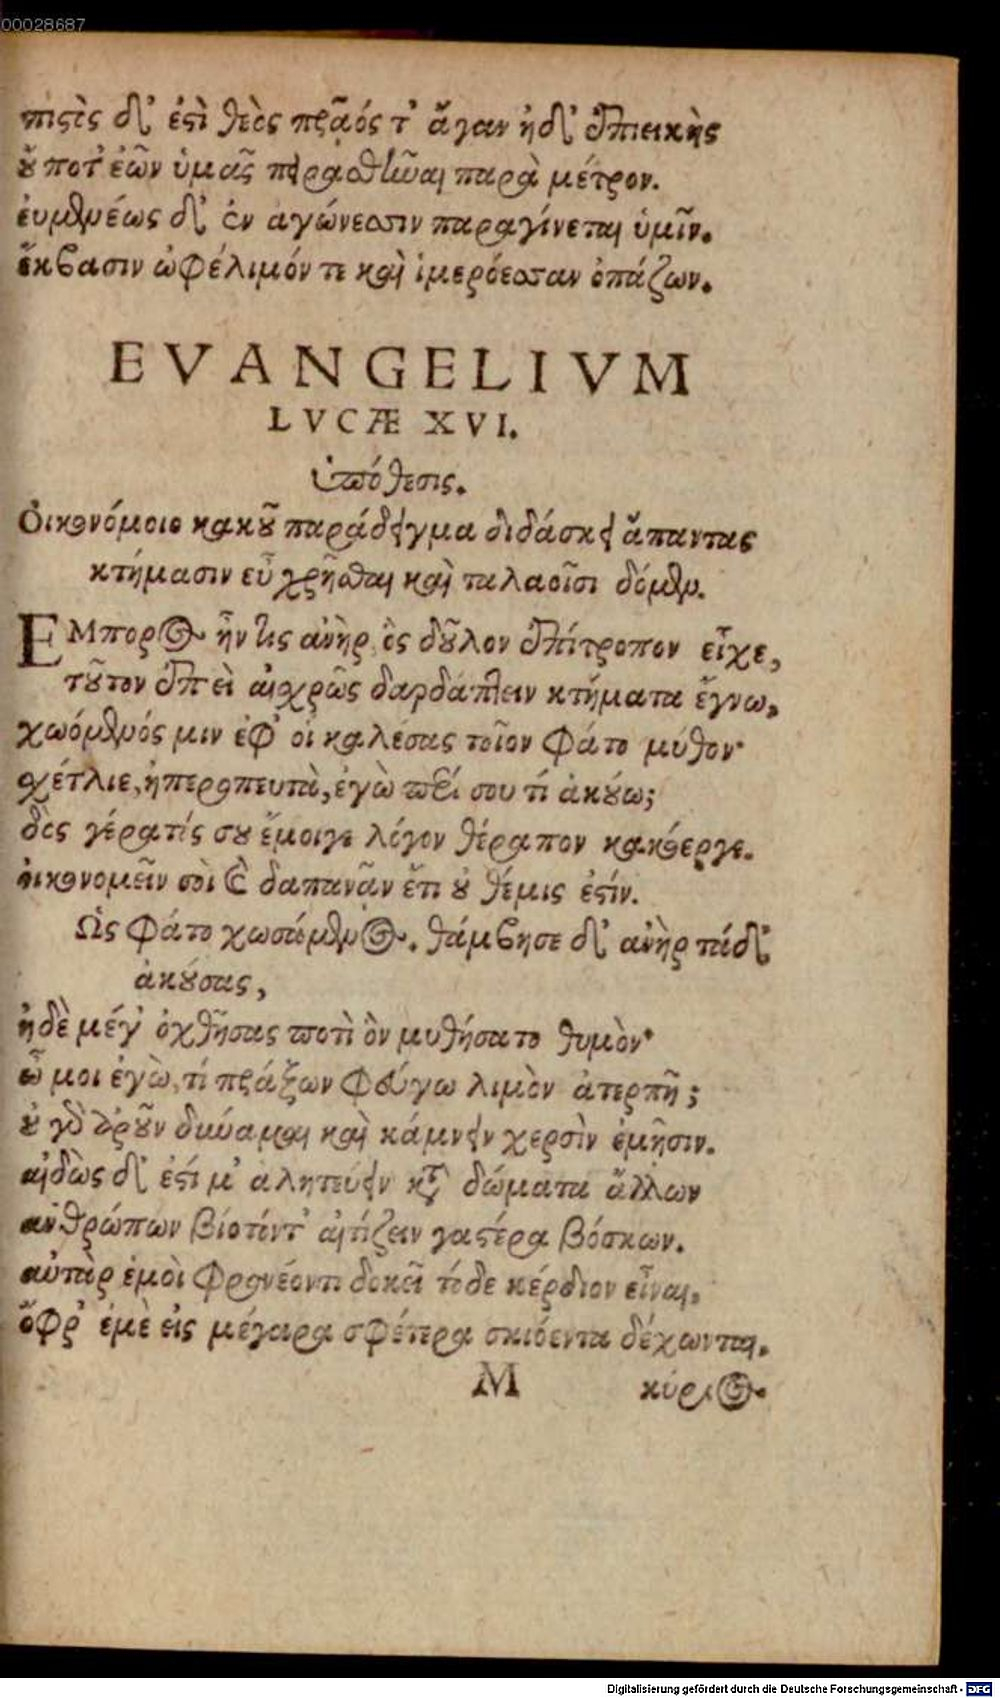 00028687
πιστὸς δ' ἐστὶ θεὸς πρᾷός τ' ἄγαν ἠδ' ἐπιεικὴς
οὔ ποτ' ἐῶν ὑμᾶς πειρασθῆναι παρὰ μέτρον.
εὐμενέως δ' ἐν ἀγώνεσσιν παραγίνεται ὑμῖν.
ἔκβασιν ὠφέλιμόν τε καὶ ἱμερόεσσαν ὀπάζων.
EVANGELIVM
LVCÆ XVI.
ὑπόθεσις.
Οἰκονόμοιο κακοῦ παράδειγμα διδάσκει ἅπαντας
κτήμασιν εὖ χρῆσθαι καὶ ταλαοῖσι δόμεν.
ΕΜπορος ἦν τις ἀνὴρ ὃς δοῦλον ἐπίτροπον εἶχε,
τοῦτον ἐπεὶ αἰσχρῶς δαρδάπτειν κτήματα ἔγνω,
χωόμενός μιν ἐφ' οἷ καλέσας τοῖον φάτο μύθον·
σχέτλιε, ἠπεροπευτὰ, ἐγὼ περί σου τί ἀκούω;
δὸς γέρατίς σου ἔμοιγε λόγον θέραπον κακόεργε.
οἰκονομεῖν σοὶ καὶ δαπανᾶν ἔτι οὐ θέμις ἐστίν.
Ὣς φάτο χωσάμενος. θάμβησε δ' ἀνὴρ τάδ'
ἀκούσας,
ἠδὲ μέγ' ὀχθήσας ποτὶ ὃν μυθήσατο θυμὸν·
ὤ μοι ἐγὼ, τί πράξων φεύγω λιμὸν ἀτερπῆ;
οὐ γὰρ ὀροῦν δύναμαι καὶ κάμνειν χερσὶν ἐμῇσιν.
αἰδὼς δ' ἐστί μ' ἀλητεύειν κατὰ δώματα ἄλλων
ἀνθρώπων βίοτόντ' αἰτίζειν γαστέρα βόσκων.
αὐτὰρ ἐμοὶ φρονέοντι δοκεῖ τόδε κέρδιον εἶναι,
ὄφρ' ἐμὲ εἰς μέγαρα σφέτερα σκιόεντα δέχωνται.
M κύριος
Digitalisierung gefördert durch die Deutsche Forschungsgemeinschaft - DFG